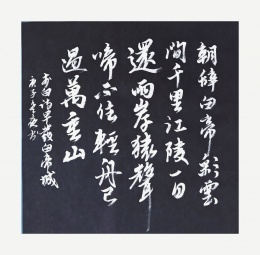 朝辭白帝彩雲
間千里江陵一日
還兩岸猿聲
啼不住輕舟已
過萬重山
李白詩早發白帝城
庚子